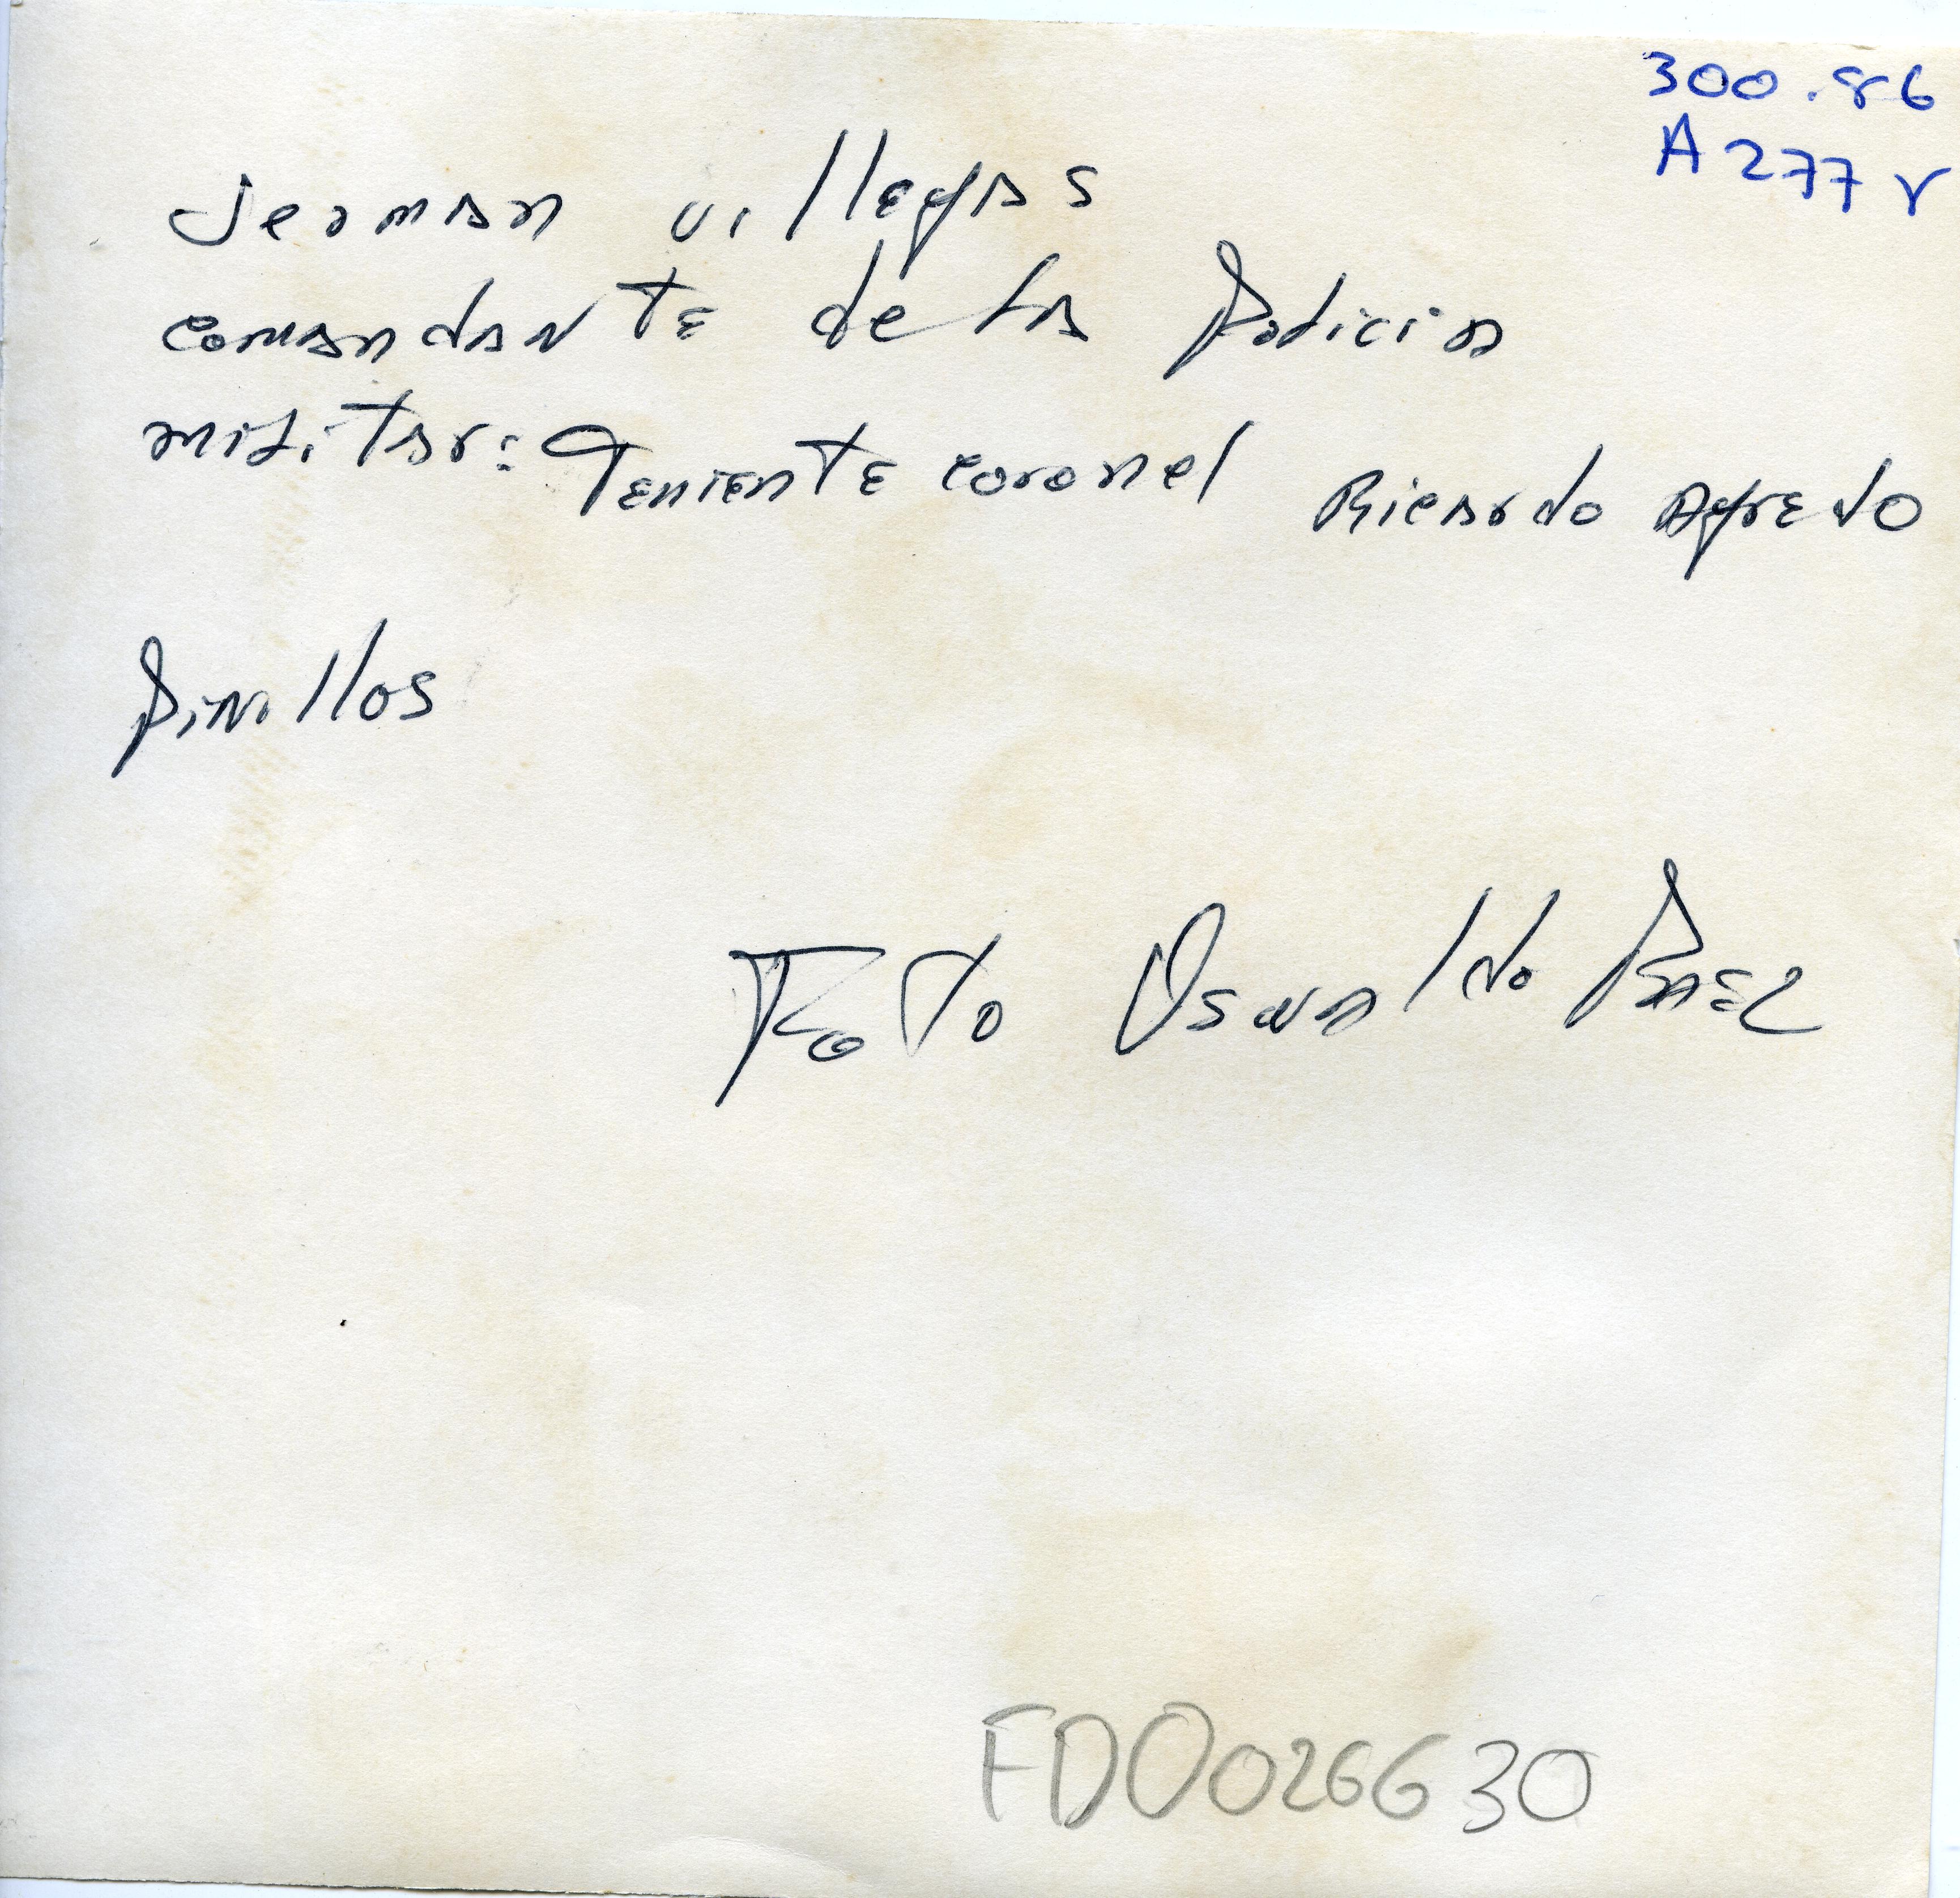 300.86
A277r
Jerman villegas
comandante de la Policia
militar: Teniente coronel Ricardo Agredo
Pinillos
Foto Oswaldo Paez
FD0026630